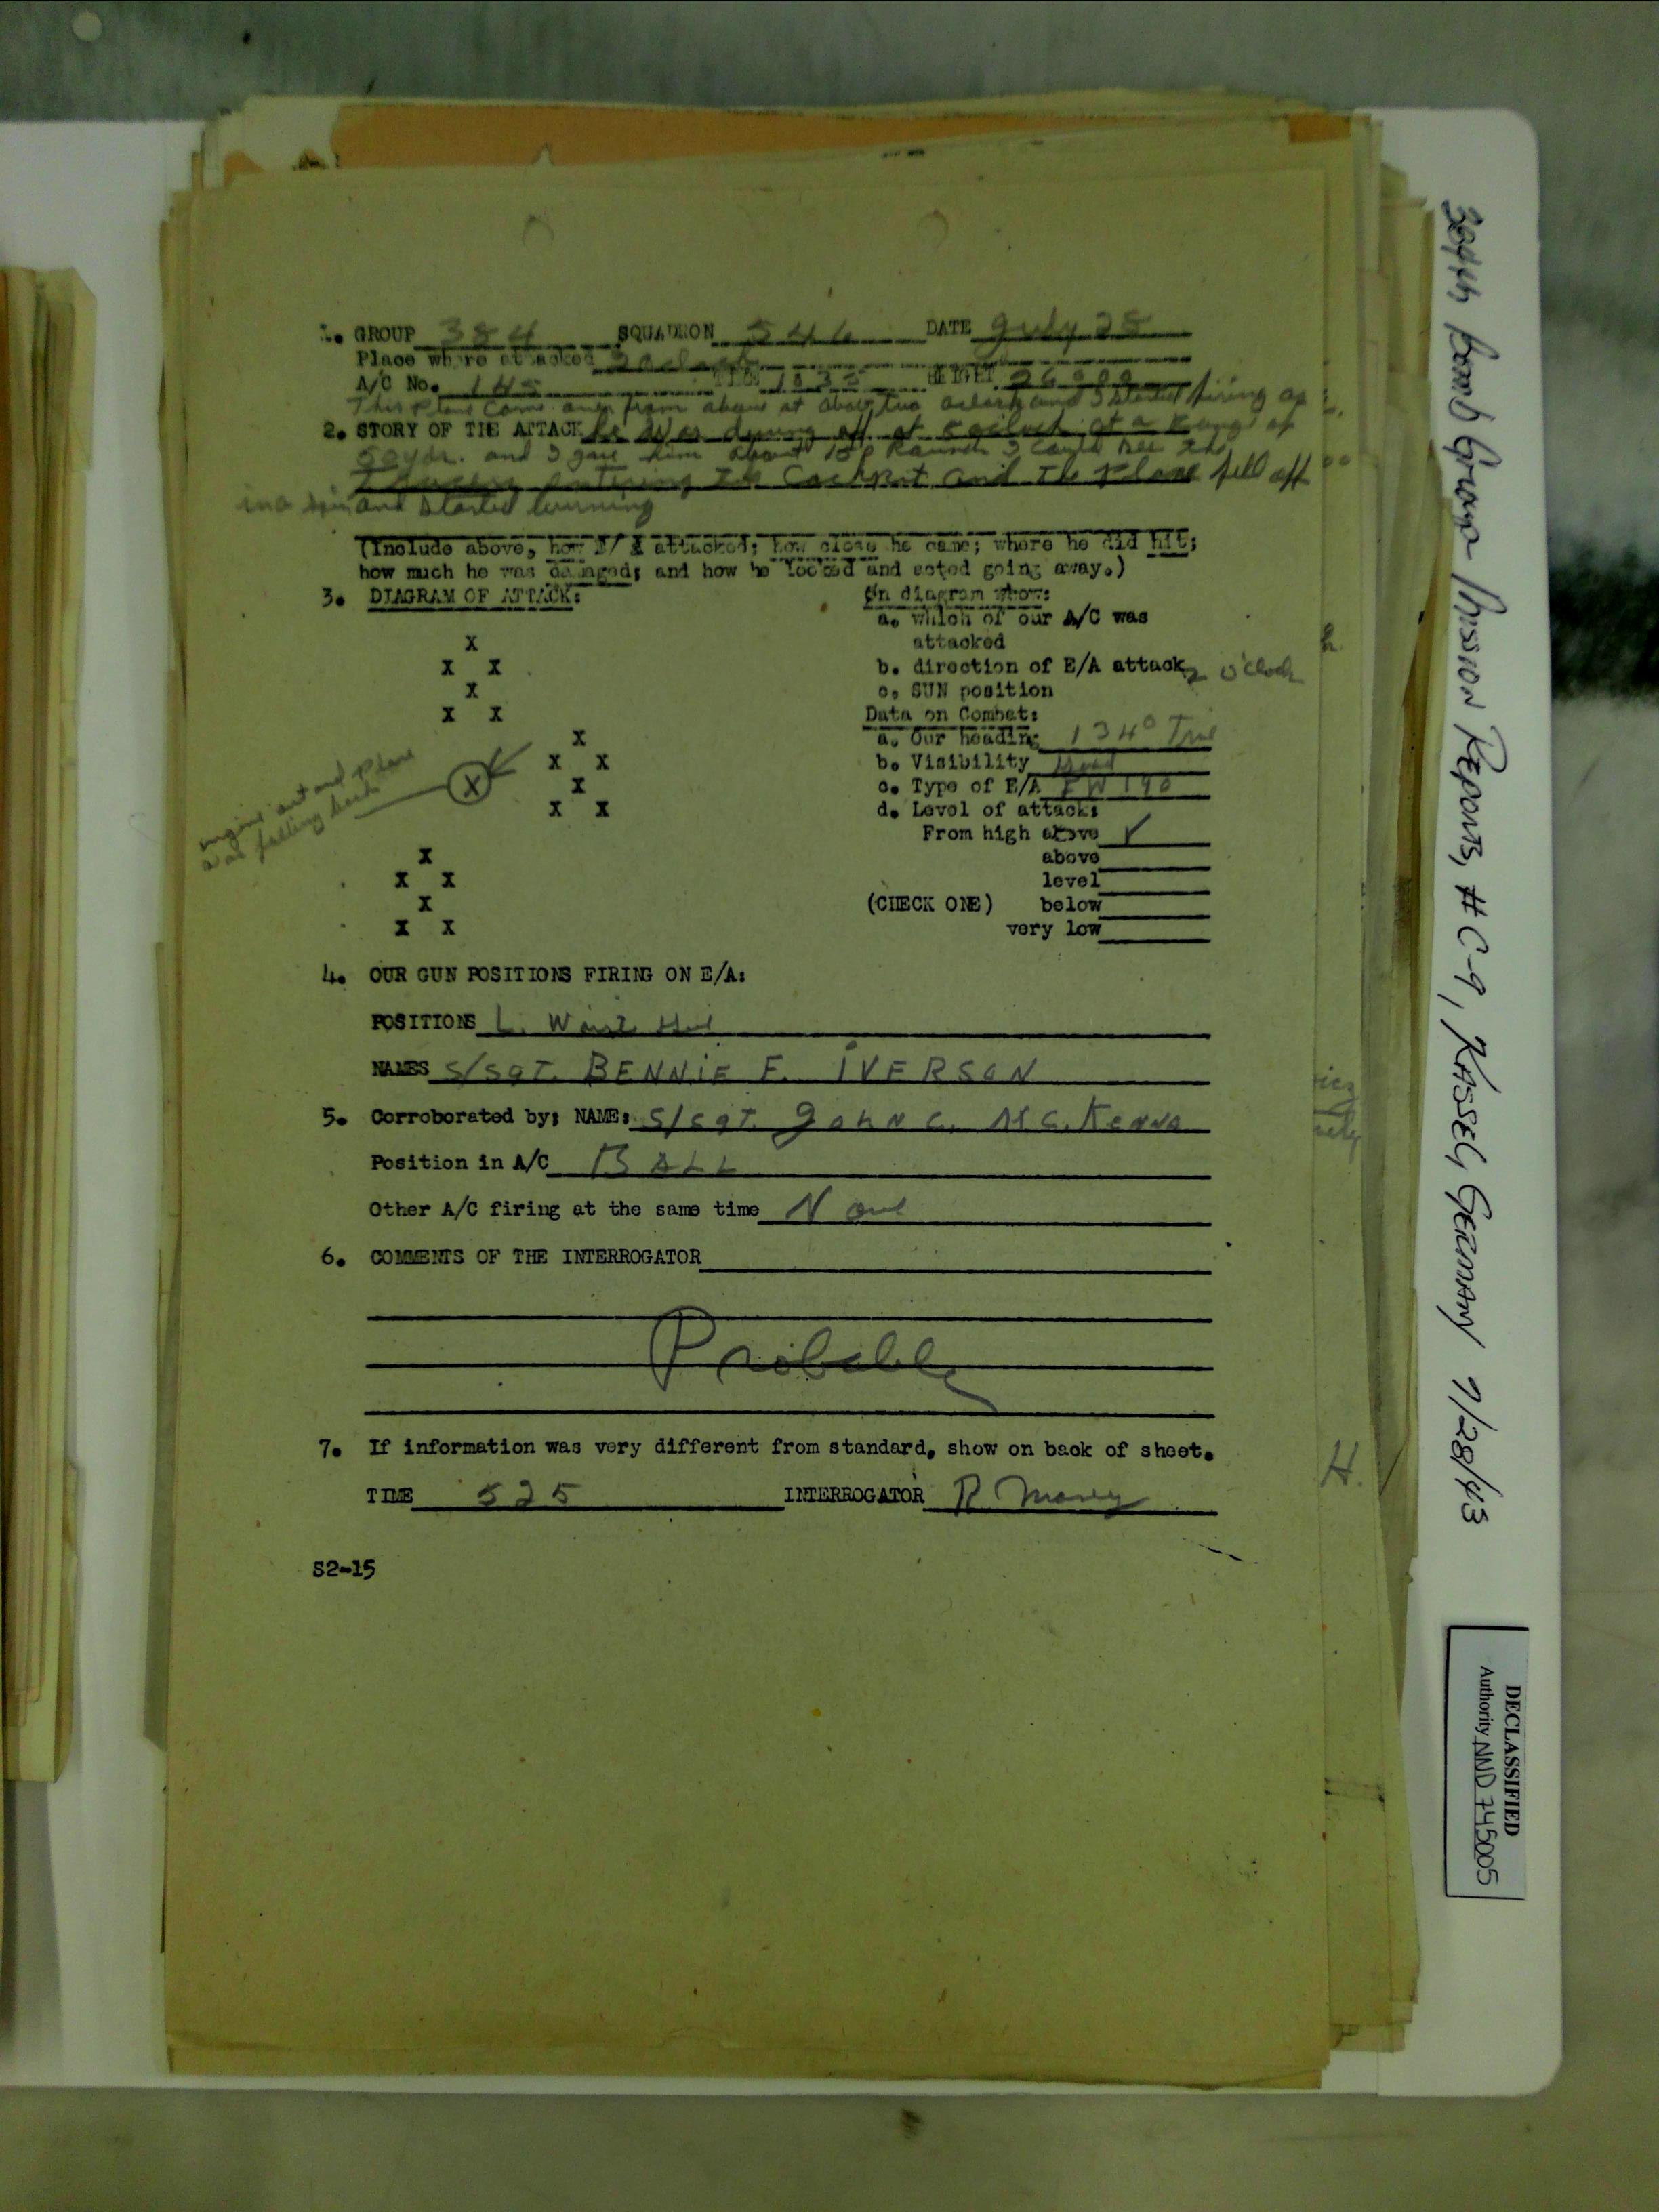 1. GROUP 384 SQUADRON 546 DATE July 28
Place where attacked 2 oclock
A/C No. 145 TIME 1035 HEIGHT 26000
This plane came over from above at about two oclock and I started firing as
2. STORY OF THE ATTACK he was diving off at 5 oclock at a range of
50 yds. and I gave him about 150 Rounds I could see the
Tracers entering the Cockpit and the plane fell off
in a spin and started burning
(Include above, how E/A attacked; how close he came; where he did hit;
how much he was damaged; and how he looked and acted going away.)
3. DIAGRAM OF ATTACK: On diagram show:
a. which of our A/C was
X attacked
X X b. direction of E/A attack 2 o'clock
X c. SUN position
X X Data on Combat:
X a. Our heading 134° True
X X b. Visibility Good
X X c. Type of E/A FW 190
X X d. Level of attack:
engine out and plane
was falling back
From high above ✓
X above
X X level
X (CHECK ONE) below
X X very low
4. OUR GUN POSITIONS FIRING ON E/A:
POSITIONS L. Waist
NAMES S/SGT. BENNIE E. IVERSON
5. Corroborated by; NAME: S/SGT. John C. McKenna
Position in A/C BALL
Other A/C firing at the same time None
6. COMMENTS OF THE INTERROGATOR
Probable
7. If information was very different from standard, show on back of sheet.
TIME 525 INTERROGATOR R
S2-15
H.
384th Bomb Group Mission Reports, #C-9, Kassel, Germany 7/28/43
DECLASSIFIED
Authority NND 745005